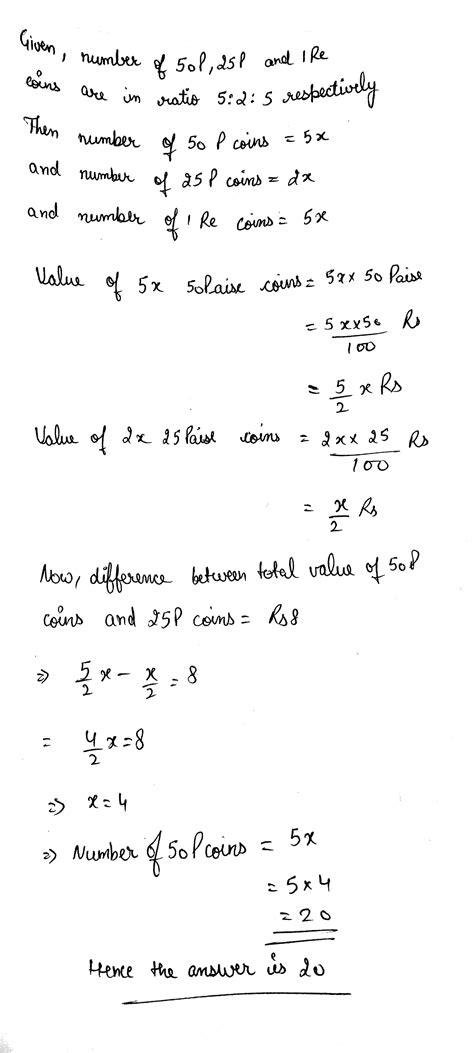 Given, number of 50P, 25P and 1 Re
coins are in ratio 5:2:5 respectively
Then number of 50 P coins = 5x
and number of 25P coins = 2x
and number of 1 Re coins = 5x
Value of 5x 50Paise coins = 5x × 50 Paise
= 5x×50/100 Rs
= 5/2 x Rs
Value of 2x 25Paise coins = 2x × 25/100 Rs
= x/2 Rs
Now, difference between total value of 50P
coins and 25P coins = Rs8
⇒ 5/2 x - x/2 = 8
= 4/2 x = 8
⇒ x = 4
⇒ Number of 50P coins = 5x
= 5×4
= 20
Hence the answer is 20